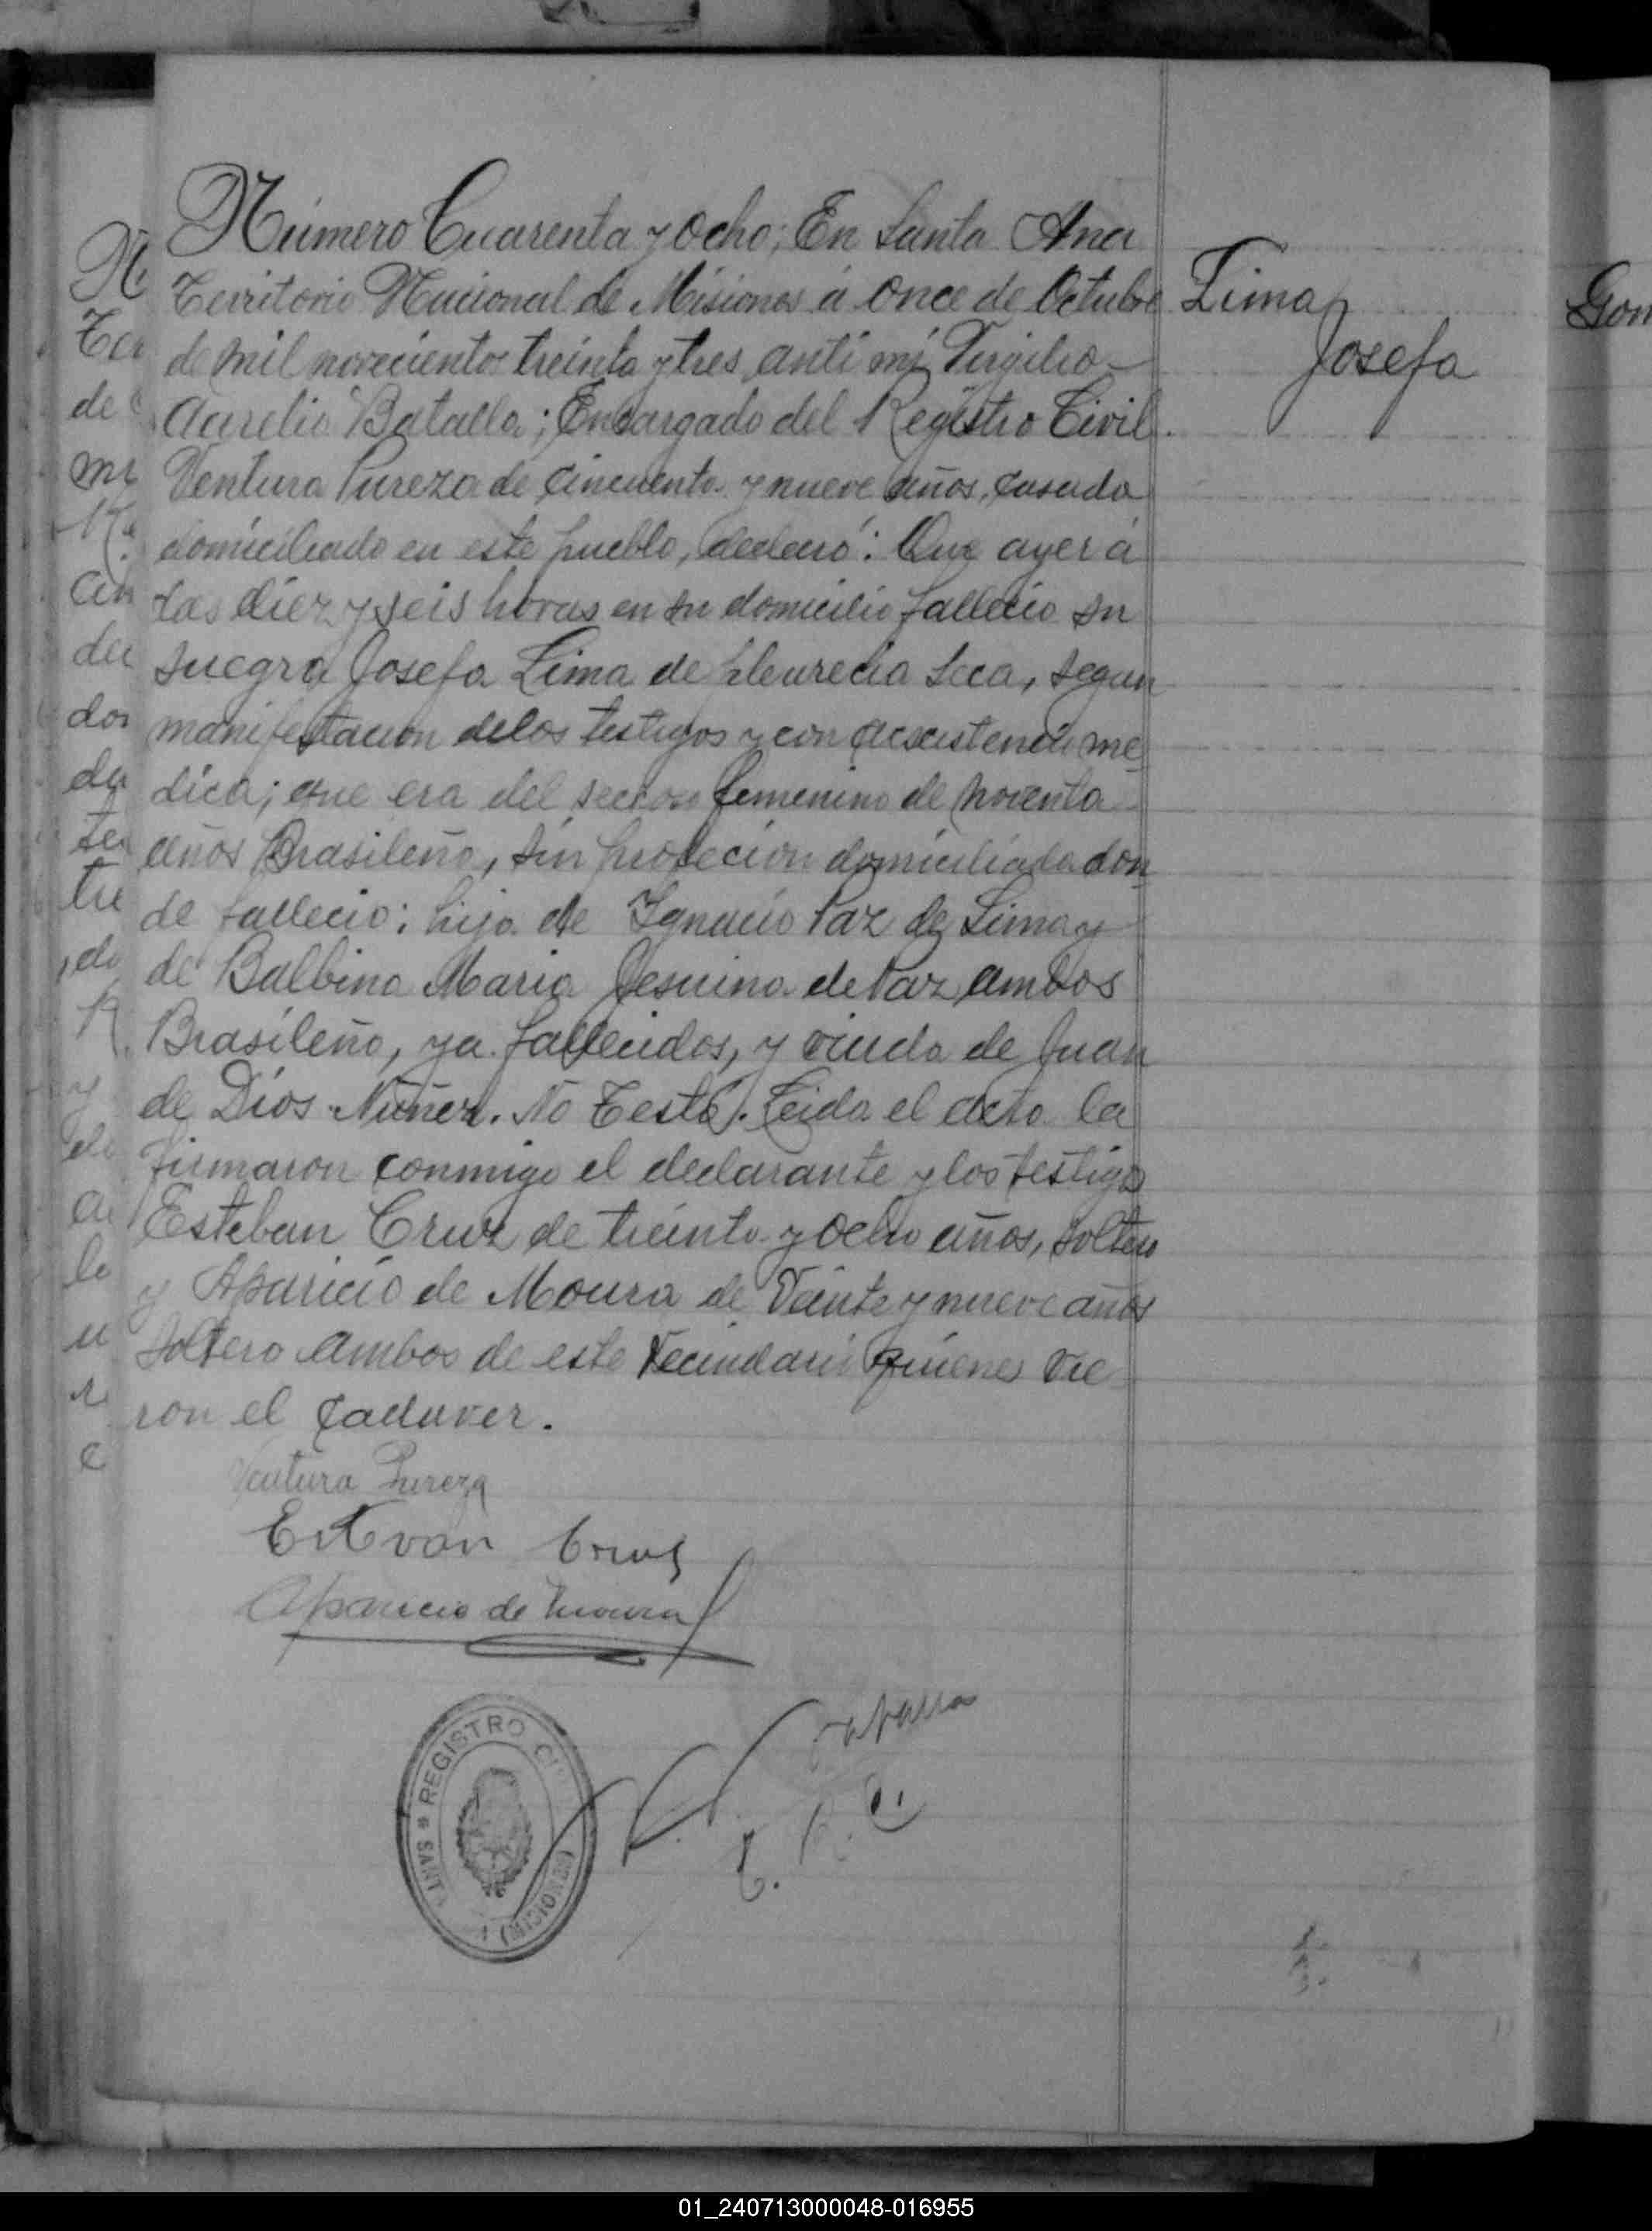 Número Cuarenta y Ocho; En Santa Ana
Territorio Nacional de Misiones á once de Octubre
de mil novecientos treinta y tres, anti mi, Virgilio
Aurelio Batalla; Encargado del Registro Civil.
Ventura Pureza de cincuenta y nueve años, casado
domiciliado en este pueblo, declaró: Que ayer á
las diez y seis horas en su domicilio fallecio su
suegra Josefa Lima de pleurecia seca, segun
manifestacion de los testigos y con me
dica; que era del femenino de noventa
años Brasileña, sin profecion domiciliada don
de fallecio; hija de Ignacio Paz de Lima y
de Balbina Maria Jesuina de Paz ambos
Brasileño, ya fallecidos, y viuda de Juan
de Dios Nuñez. No Testó. Leida el acta la
firmaron conmigo el declarante y los testigo
Esteban Cruz de treinta y ocho años, soltero
y Aparicio de Moura de Veinte y nueve años
soltero ambos de este Vecindario quienes vie
ron el cadaver.
Lima,
Josefa
Gom
Ventura Pureza
Estevan Cruz
Aparicio de Moura
REGISTRO CI
SANT
(MISIONES)
01_240713000048-016955